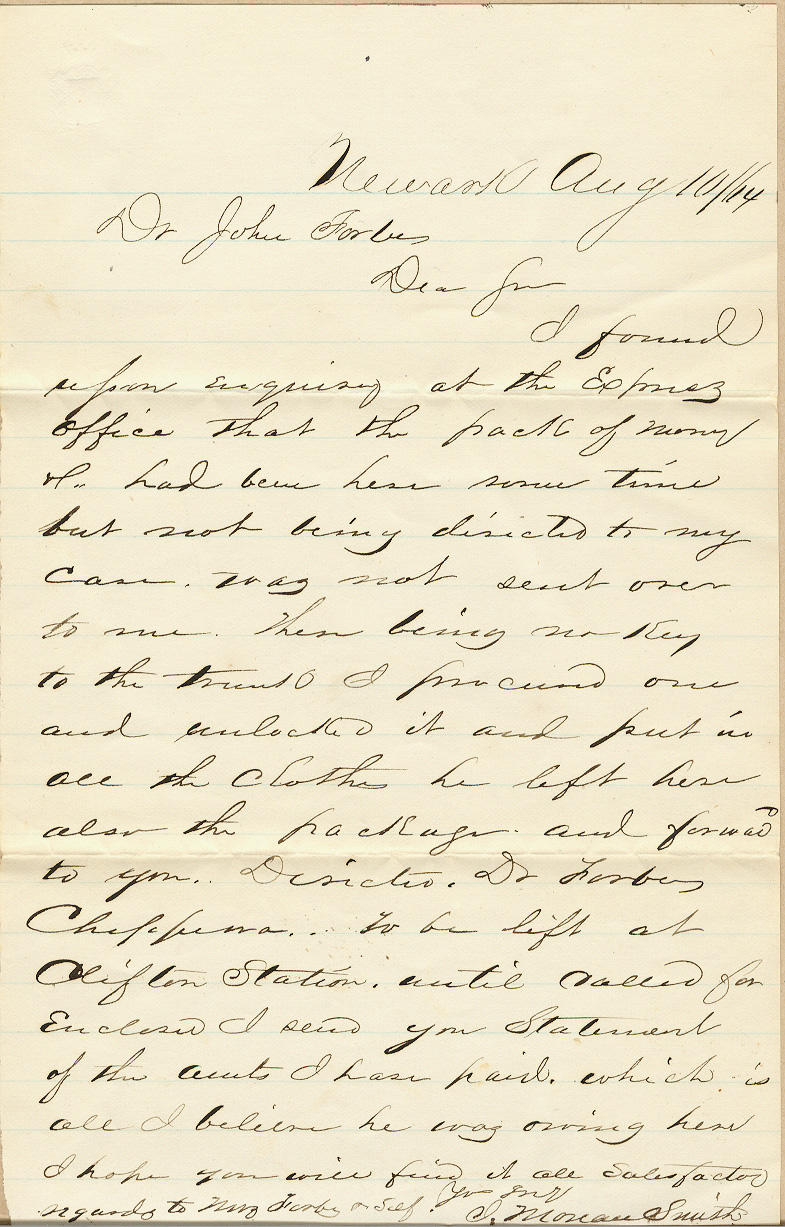 Newark Aug 10/64
Dr John Forbes
Dear Sir
I found
upon enquiry at the Express
office that the pack of money
&c. had been here some time
but not being directed to my
care. was not sent over
to me. There being no key
to the trunk I procured one
and unlocked it and put in
all the clothes he left here
also the package. and forwad
to you.. Directed. Dr Forbes
Chippewa.. to be left at
Clifton Station. until called for
Enclosed I send you Statement
of the amts I have paid. which is
all I believe he was owing here
I hope you will find it all Satisfactory
regards to Mrs Forbes & Self. Yrs
Smith